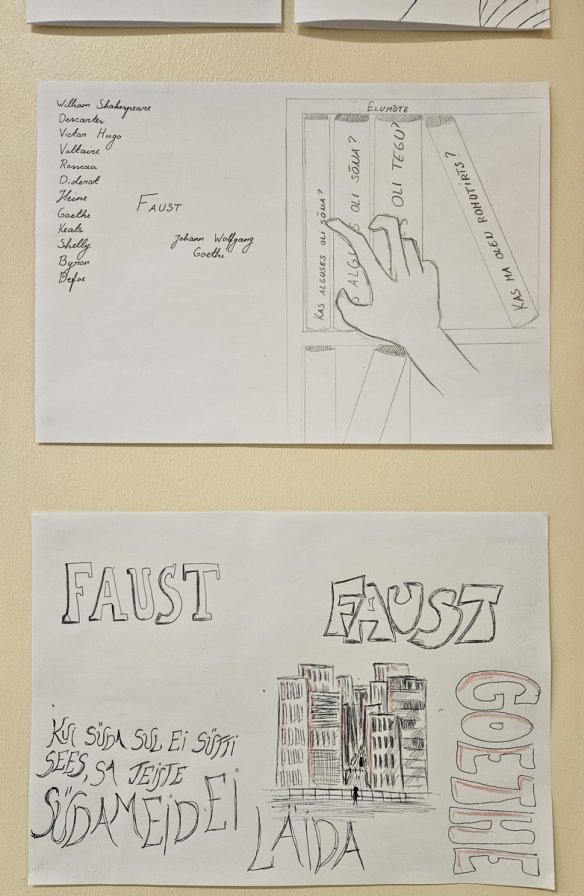 William Shakespeare
Descartes
Victor Hugo
Voltaire
Rosseau
Diderot
Heine
Goethe
Keats
Shelly
Byron
Defoe
FAUST
Johann Wolfgang
Goethe
ELUMÕTE
KAS ALGUSES OLI SÕNA?
ALGU S OLI SÕNA?
S OLI TEGU?
KAS MA OLEN ROHUTIRTS?
FAUST
KUI SÜDA SUL EI SÜTTI
SEES, SA TEISTE
SÜDAMEID EI
LÄIDA
FAUST
GOETHE